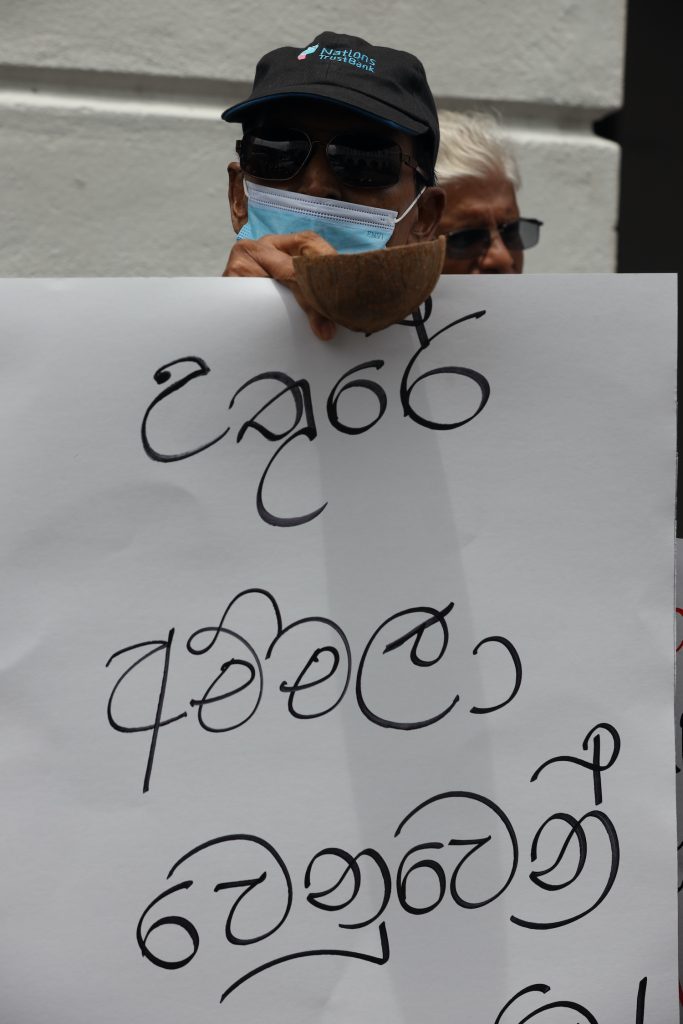 Nations
TrustBank
උතුරේ
අම්මලා
වෙනුවෙන්